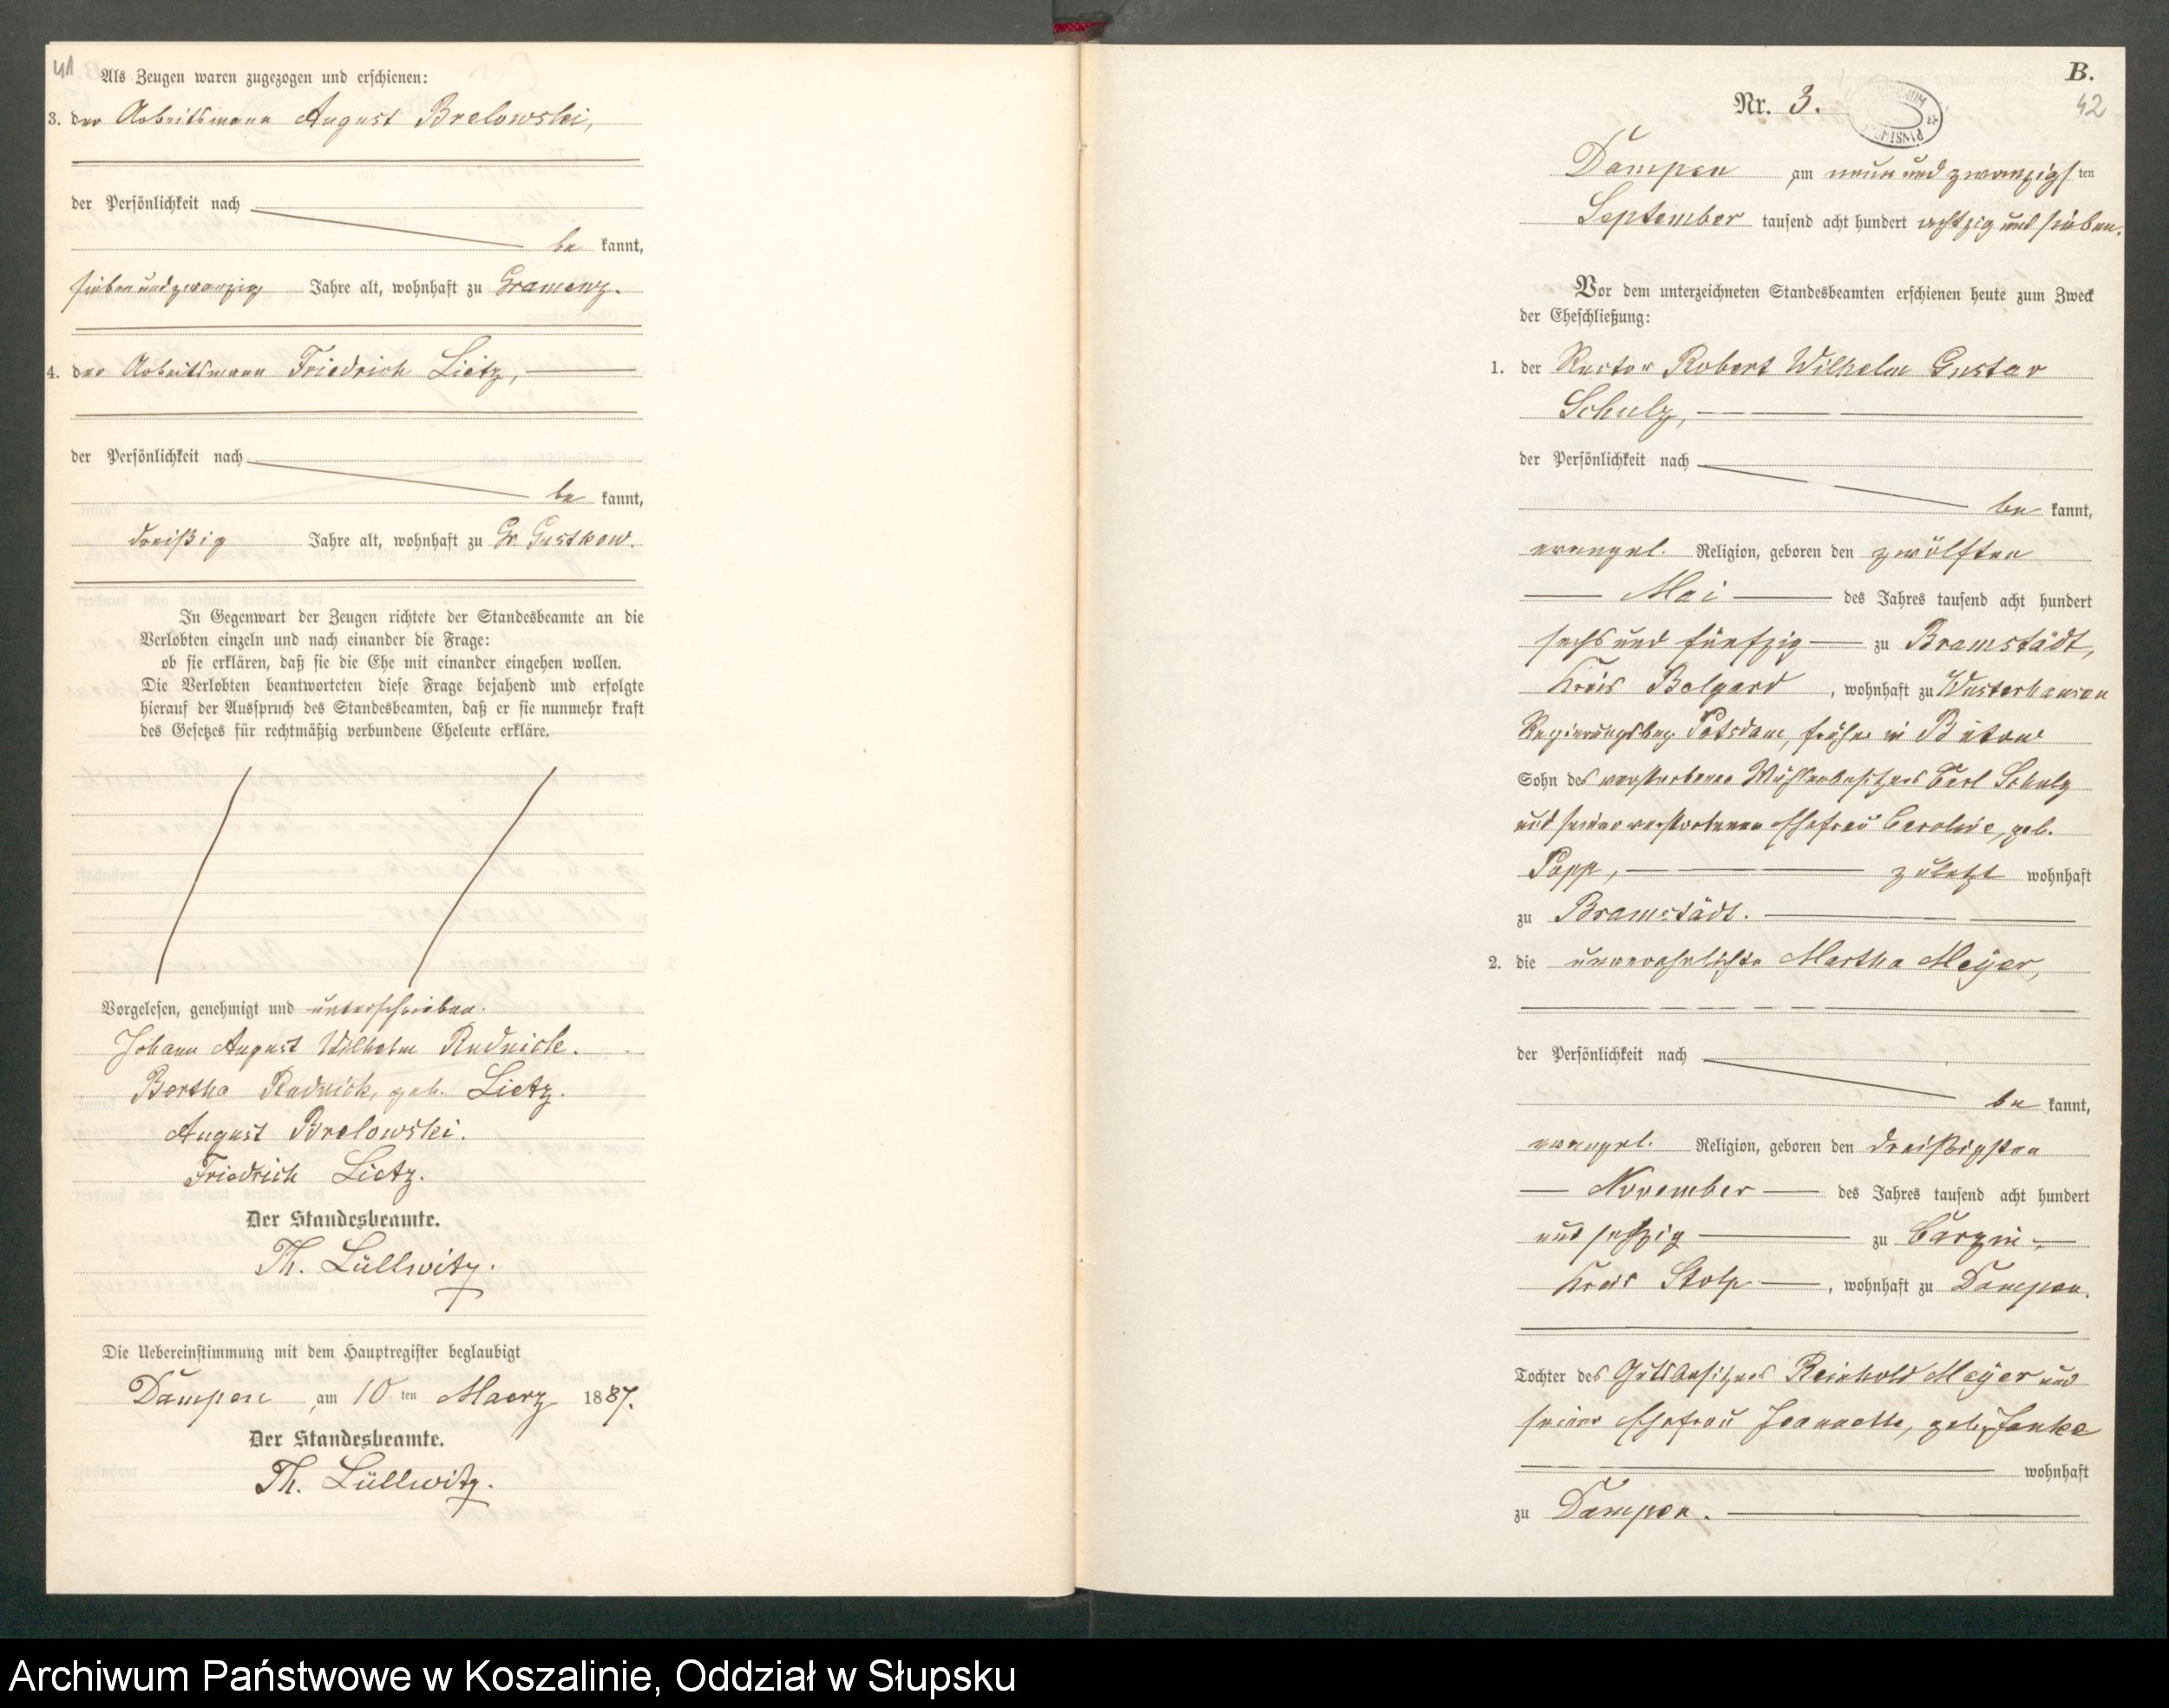 41
Als Zeugen waren zugezogen und erschienen:
3. der Arbeitsmann August Brelowski,
der Persönlichkeit nach
be kannt,
sieben und zwanzig Jahre alt, wohnhaft zu Gramenz.
4. der Arbeitsmann Friedrich Lietz,
der Persönlichkeit nach
be kannt,
dreißig Jahre alt, wohnhaft zu Gr. Gustkow.
In Gegenwart der Zeugen richtete der Standesbeamte an die
Verlobten einzeln und nach einander die Frage:
ob sie erklären, daß sie die Ehe mit einander eingehen wollen.
Die Verlobten beantworteten diese Frage bejahend und erfolgte
hierauf der Ausspruch des Standesbeamten, daß er sie nunmehr kraft
des Gesetzes für rechtmäßig verbundene Eheleute erkläre.
Vorgelesen, genehmigt und unterschrieben.
Johann August Wilhelm Rudnick.
Bertha Rudnick, geb. Lietz.
August Brelowski.
Friedrich Lietz.
Der Standesbeamte.
Th. Lüllwitz.
Die Uebereinstimmung mit dem Hauptregister beglaubigt
Dampen, am 10 ten Maerz 1887.
Der Standesbeamte.
Th. Lüllwitz.
B.
42
Nr. 3.
Dampen am neun und zwanzigs ten
September tausend acht hundert achtzig und sieben.
Vor dem unterzeichneten Standesbeamten erschienen heute zum Zweck
der Eheschließung:
1. der Rector Robert Wilhelm Gustav
Schulz,
der Persönlichkeit nach
be kannt,
evangel. Religion, geboren den zwölften
Mai des Jahres tausend acht hundert
sechs und fünfzig zu Bramstädt,
Kreis Belgard, wohnhaft zu Wusterhausen
Regierungsbez. Potsdam, früher in Bütow
Sohn des verstorbenen Mühlenbesitzers Carl Schulz
und seiner verstorbenen Ehefrau Caroline, geb.
Papp, zuletzt wohnhaft
zu Bramstädt.
2. die unverehelichte Martha Meyer,
der Persönlichkeit nach
be kannt,
evangel. Religion, geboren den dreißigsten
November des Jahres tausend acht hundert
und sechzig zu Carzin,
Kreis Stolp, wohnhaft zu Dampen.
Tochter des Gutsbesitzers Reinhold Meyer und
seiner Ehefrau Jeannette, geb. Janke
wohnhaft
zu Dampen.
Archiwum Państwowe w Koszalinie, Oddział w Słupsku